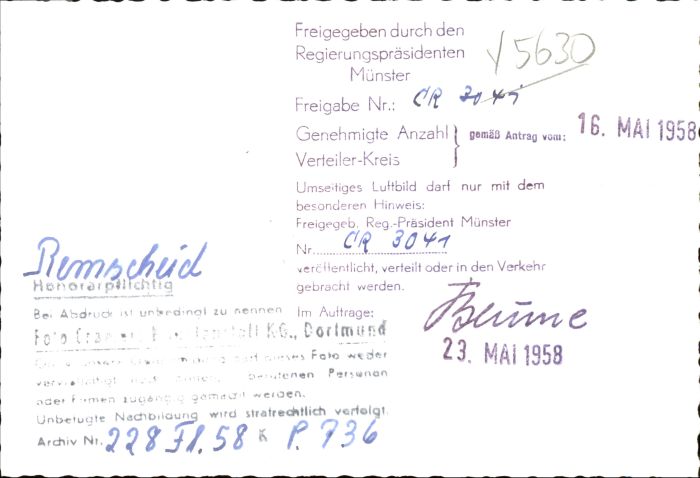 Freigegeben durch den
Regierungspräsidenten
Münster
√5630
Freigabe Nr.: CR 3041
Genehmigte Anzahl } gemäß Antrag vom: 16. MAI 1958
Verteiler-Kreis
Umseitiges Luftbild darf nur mit dem
besonderen Hinweis:
Freigegeb. Reg.-Präsident Münster
Nr. CR 3041
veröffentlicht, verteilt oder in den Verkehr
gebracht werden.
Im Auftrage:
Blume
23. MAI 1958
Remscheid
Honorarpflichtig
Bei Abdruck ist unbedingt zu nennen
Foto KG., Dortmund
dieses Foto weder
Personen
oder Firmen zugängig gemacht werden.
Unbefugte Nachbildung wird strafrechtlich verfolgt.
Archiv Nr. 228 Fl. 58 K P. 736